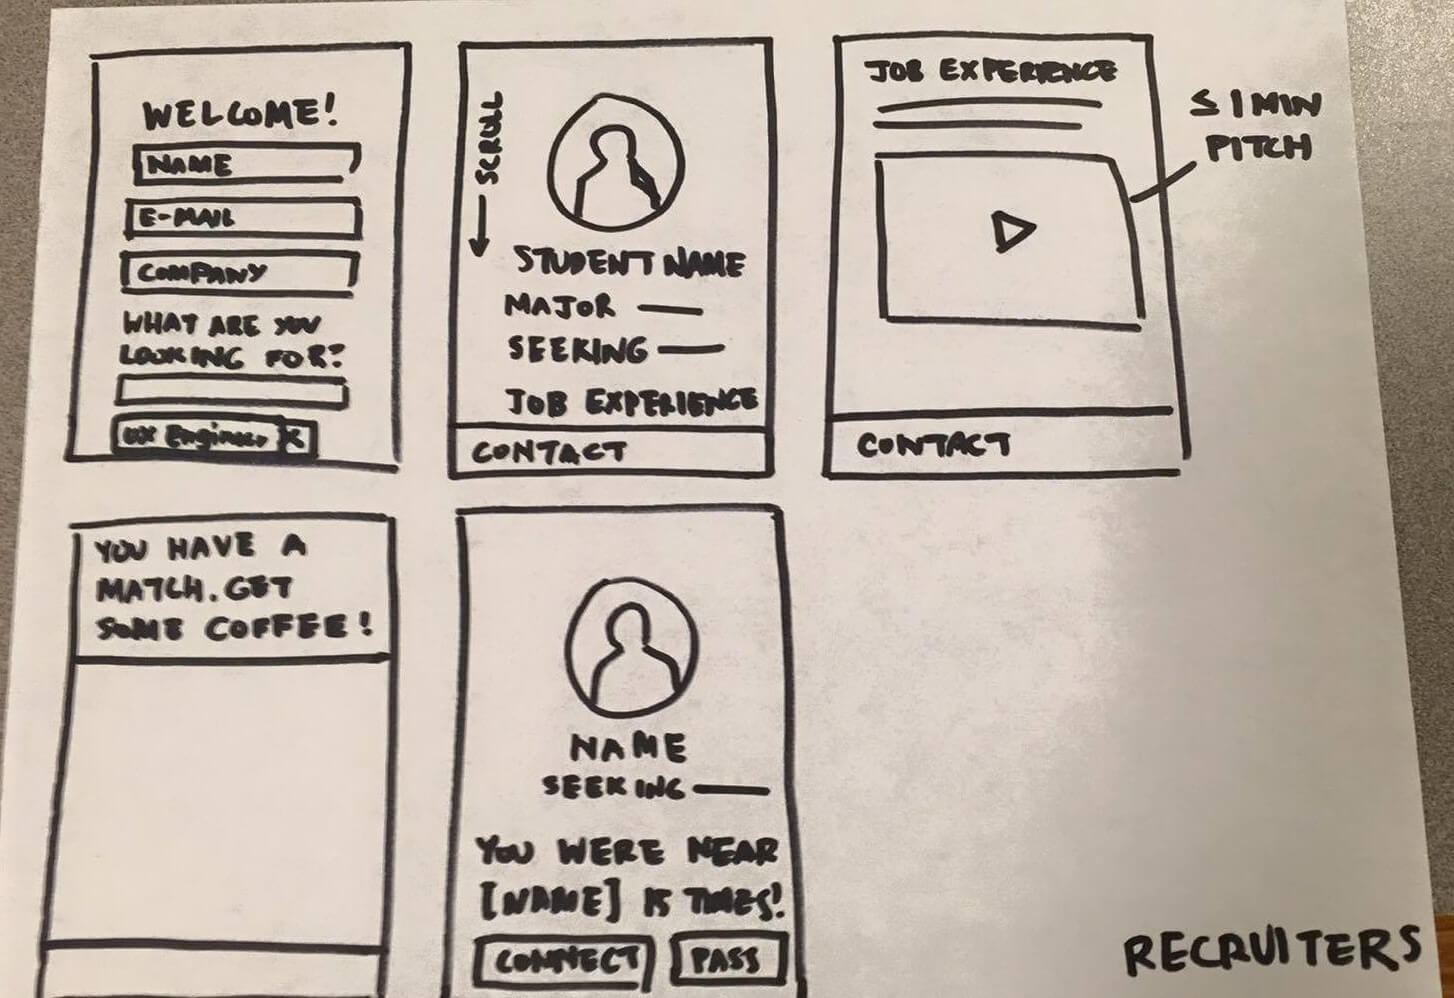 WELCOME!
NAME
E-MAIL
COMPANY
WHAT ARE YOU
LOOKING FOR?
UX Engineer X
SCROLL
STUDENT NAME
MAJOR
SEEKING
JOB EXPERIENCE
CONTACT
JOB EXPERIENCE
≤ 1 MIN
PITCH
CONTACT
YOU HAVE A
MATCH. GET
SOME COFFEE!
NAME
SEEKING
YOU WERE NEAR
[NAME] 15 TIMES!
CONNECT
PASS
RECRUITERS